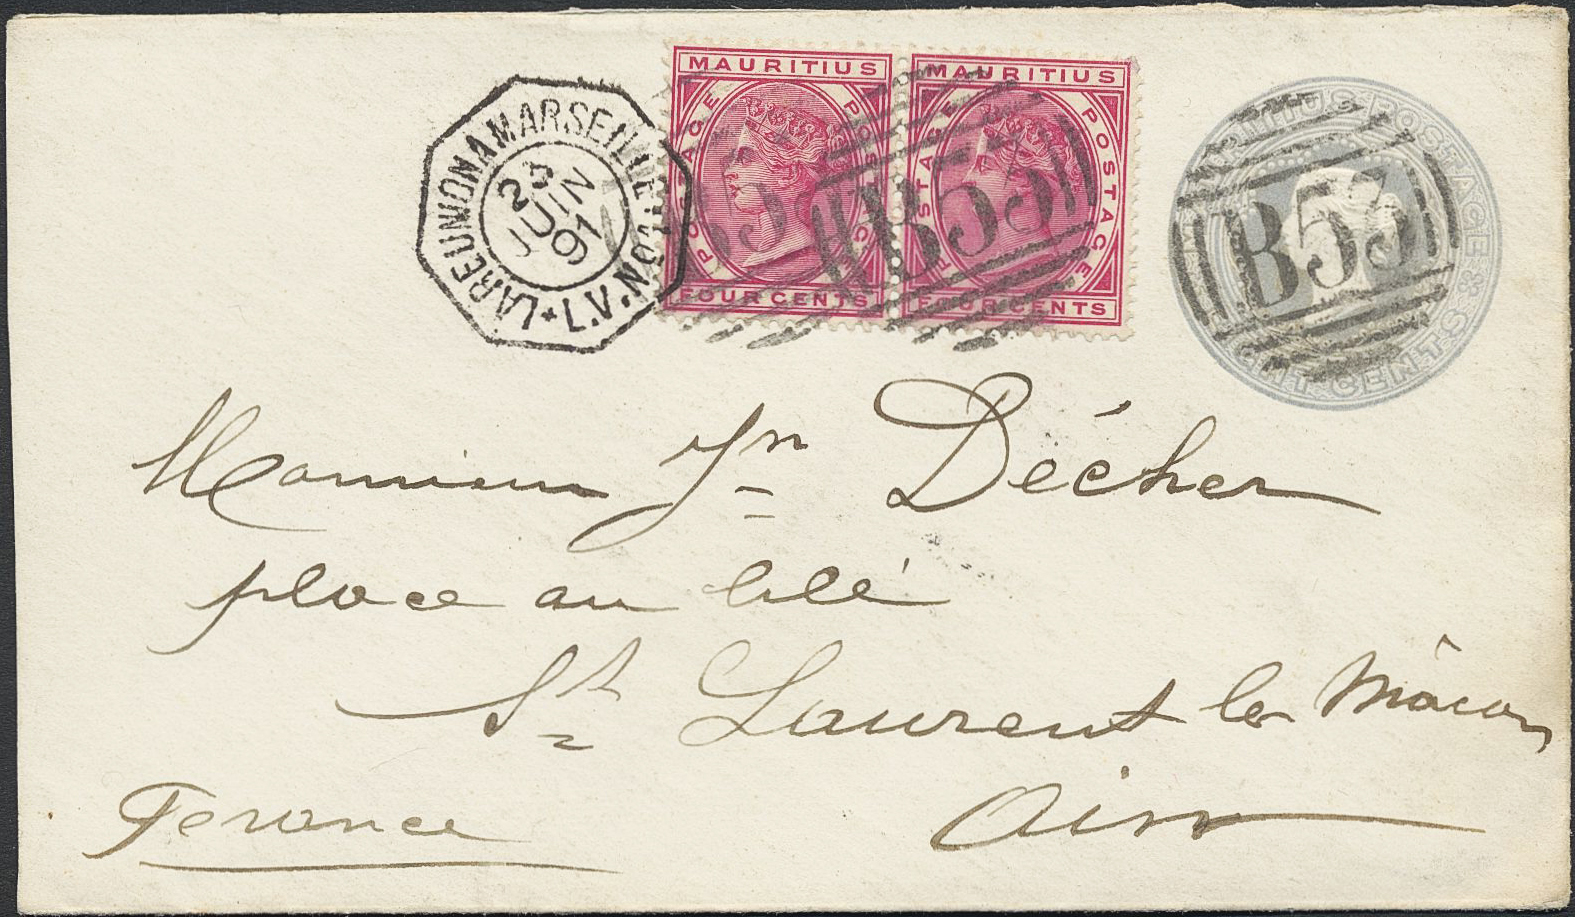 MAURITIUS
POSTAGE
FOUR CENTS
MAURITIUS
POSTAGE
FOUR CENTS
MAURITIUS POSTAGE
EIGHT CENTS
B53
B53
B53
LA REUNION A MARSEILLE
L.V. N
2
JUIN
91
Monsieur Jn Décher
place au blé
St Laurent les Mâcon
Ain
France